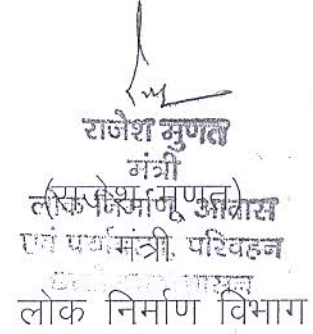 राजेश मुणत
मंत्री
(राजेश मूणत)
लोक निर्माण, आवास
एवं पर्या. मंत्री, परिवहन
लोक निर्माण विभाग